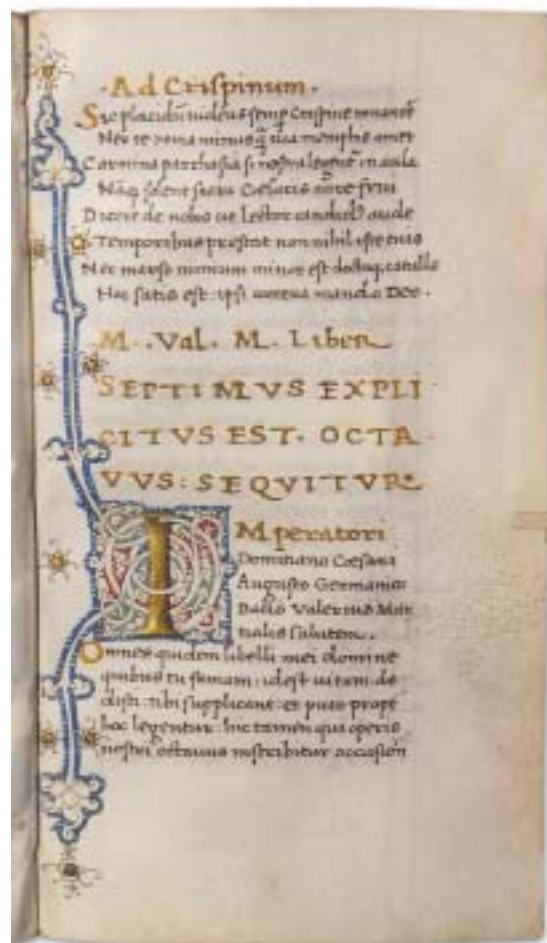 ·Ad Crispinum·
Sic placidū uideas semp Crispine tonantē
Nec te roma minus q̄ tua memphis amet
Carmina parrhasia si nostra legent᷑ in aula
Nāq solent sacra Cæsaris aure frui
Dicere de nobis ut lector candid᷒ aude
Temporibus prestat non nihil iste tuis
Nec marso nimium minor est doctoq; catullo
Hoc satis est: ipsi cætera mando Deo.
M. .Val. M. Liber
SEPTIMVS EXPLI
CITVS EST. OCTA
VVS: SEQVITVR
IMperatori
Domitiano Cæsari
Augusto Germanico
Dacio Valerius Mar
tialis salutem.
Omnes quidem libelli mei domine
quibus tu famam: idest uitam: de
disti: tibi supplicant: et puto prope
hoc legentur: hic tamen qui operis
nostri octauus inscribitur occasion